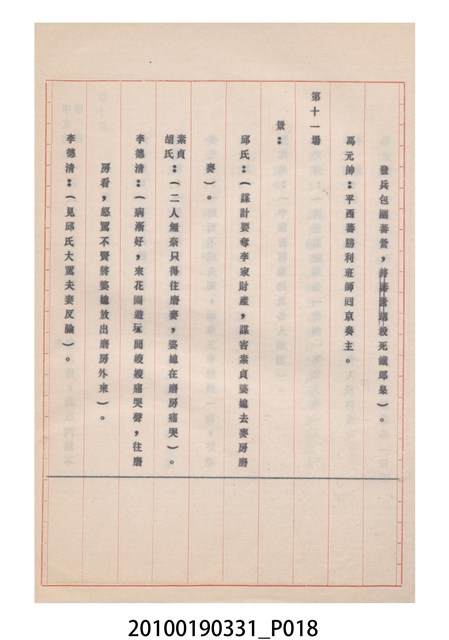 發兵包圍番營，救死鐵郎梟）。
馮元帥：平西番勝利班師回京奏主。
第十一場
景：
邱氏：（謀計要奪李家財產，謀害素貞婆媳去麥房磨
麥）。
素貞
胡氏：（二人無奈只得往磨麥，婆媳在磨房痛哭）。
李德清：（病漸好，來花園遊玩聞淒淒痛哭聲，往磨
房看，怒罵不賢將婆媳放出磨房外來）。
李德清：（見邱氏大罵夫妻反論）。
20100190331_P018